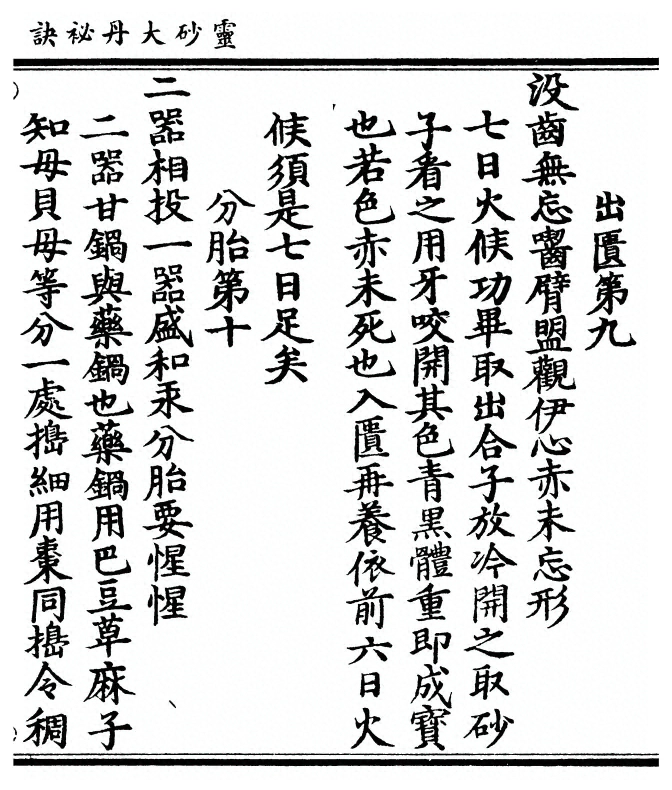 靈砂大丹祕訣
出匱第九
沒齒無忘嚙臂盟觀伊心赤未忘形
七日火候功畢取出合子放冷開之取砂
子看之用牙咬開其色青黑體重即成寶
也若色赤未死也入匱再養依前六日火
候須是七日足矣
分胎第十
二器相投一器盛和汞分胎要惺惺
二器甘鍋與藥鍋也藥鍋用巴豆草麻子
知母貝母等分一處搗細用棗同搗令稠